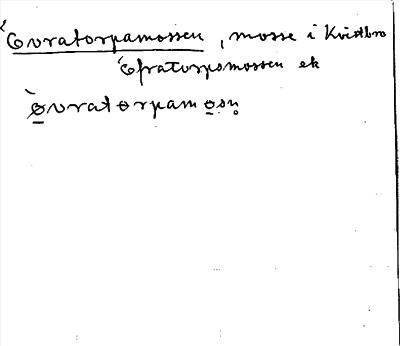 Ovratorpamossen, mosse i Kvistbro
Ofratorpsmossen ek
Òvratorpamosn̥